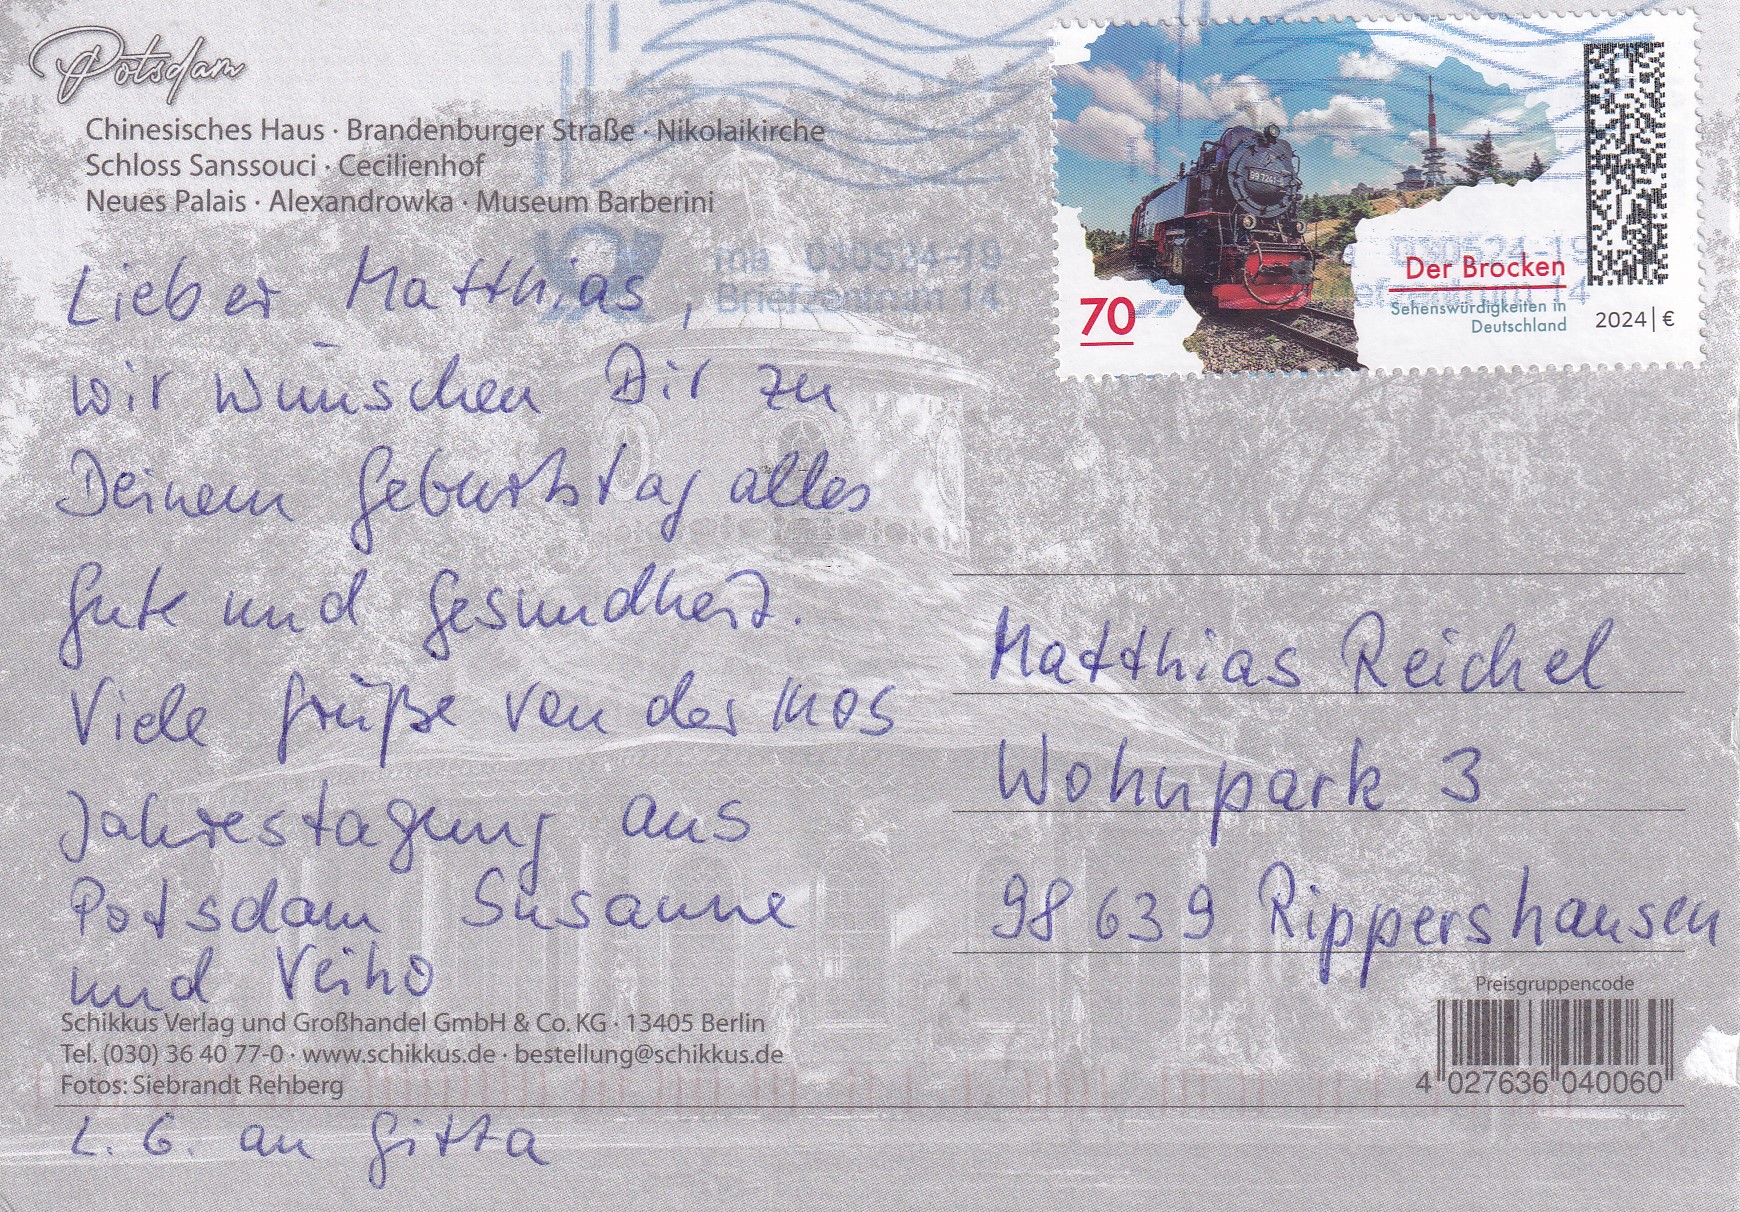 Potsdam
Chinesisches Haus · Brandenburger Straße · Nikolaikirche
Schloss Sanssouci · Cecilienhof
Neues Palais · Alexandrowka · Museum Barberini
ma 030524-19
Briefzentrum 14
99 7241-5
70
Der Brocken
Sehenswürdigkeiten in
Deutschland
2024 | €
030524-19
Briefzentrum 14
Lieber Matthias,
wir wünschen Dir zu
Deinem Geburtstag alles
Gute und Gesundheit.
Viele Grüße von der INOS
Jahrestagung aus
Potsdam Susanne
und Veiko
Matthias Reichel
Wohnpark 3
98639 Rippershausen
Preisgruppencode
4 027636 040060
Schikkus Verlag und Großhandel GmbH & Co. KG · 13405 Berlin
Tel. (030) 36 40 77-0 · www.schikkus.de · bestellung@schikkus.de
Fotos: Siebrandt Rehberg
L. G. an Gitta